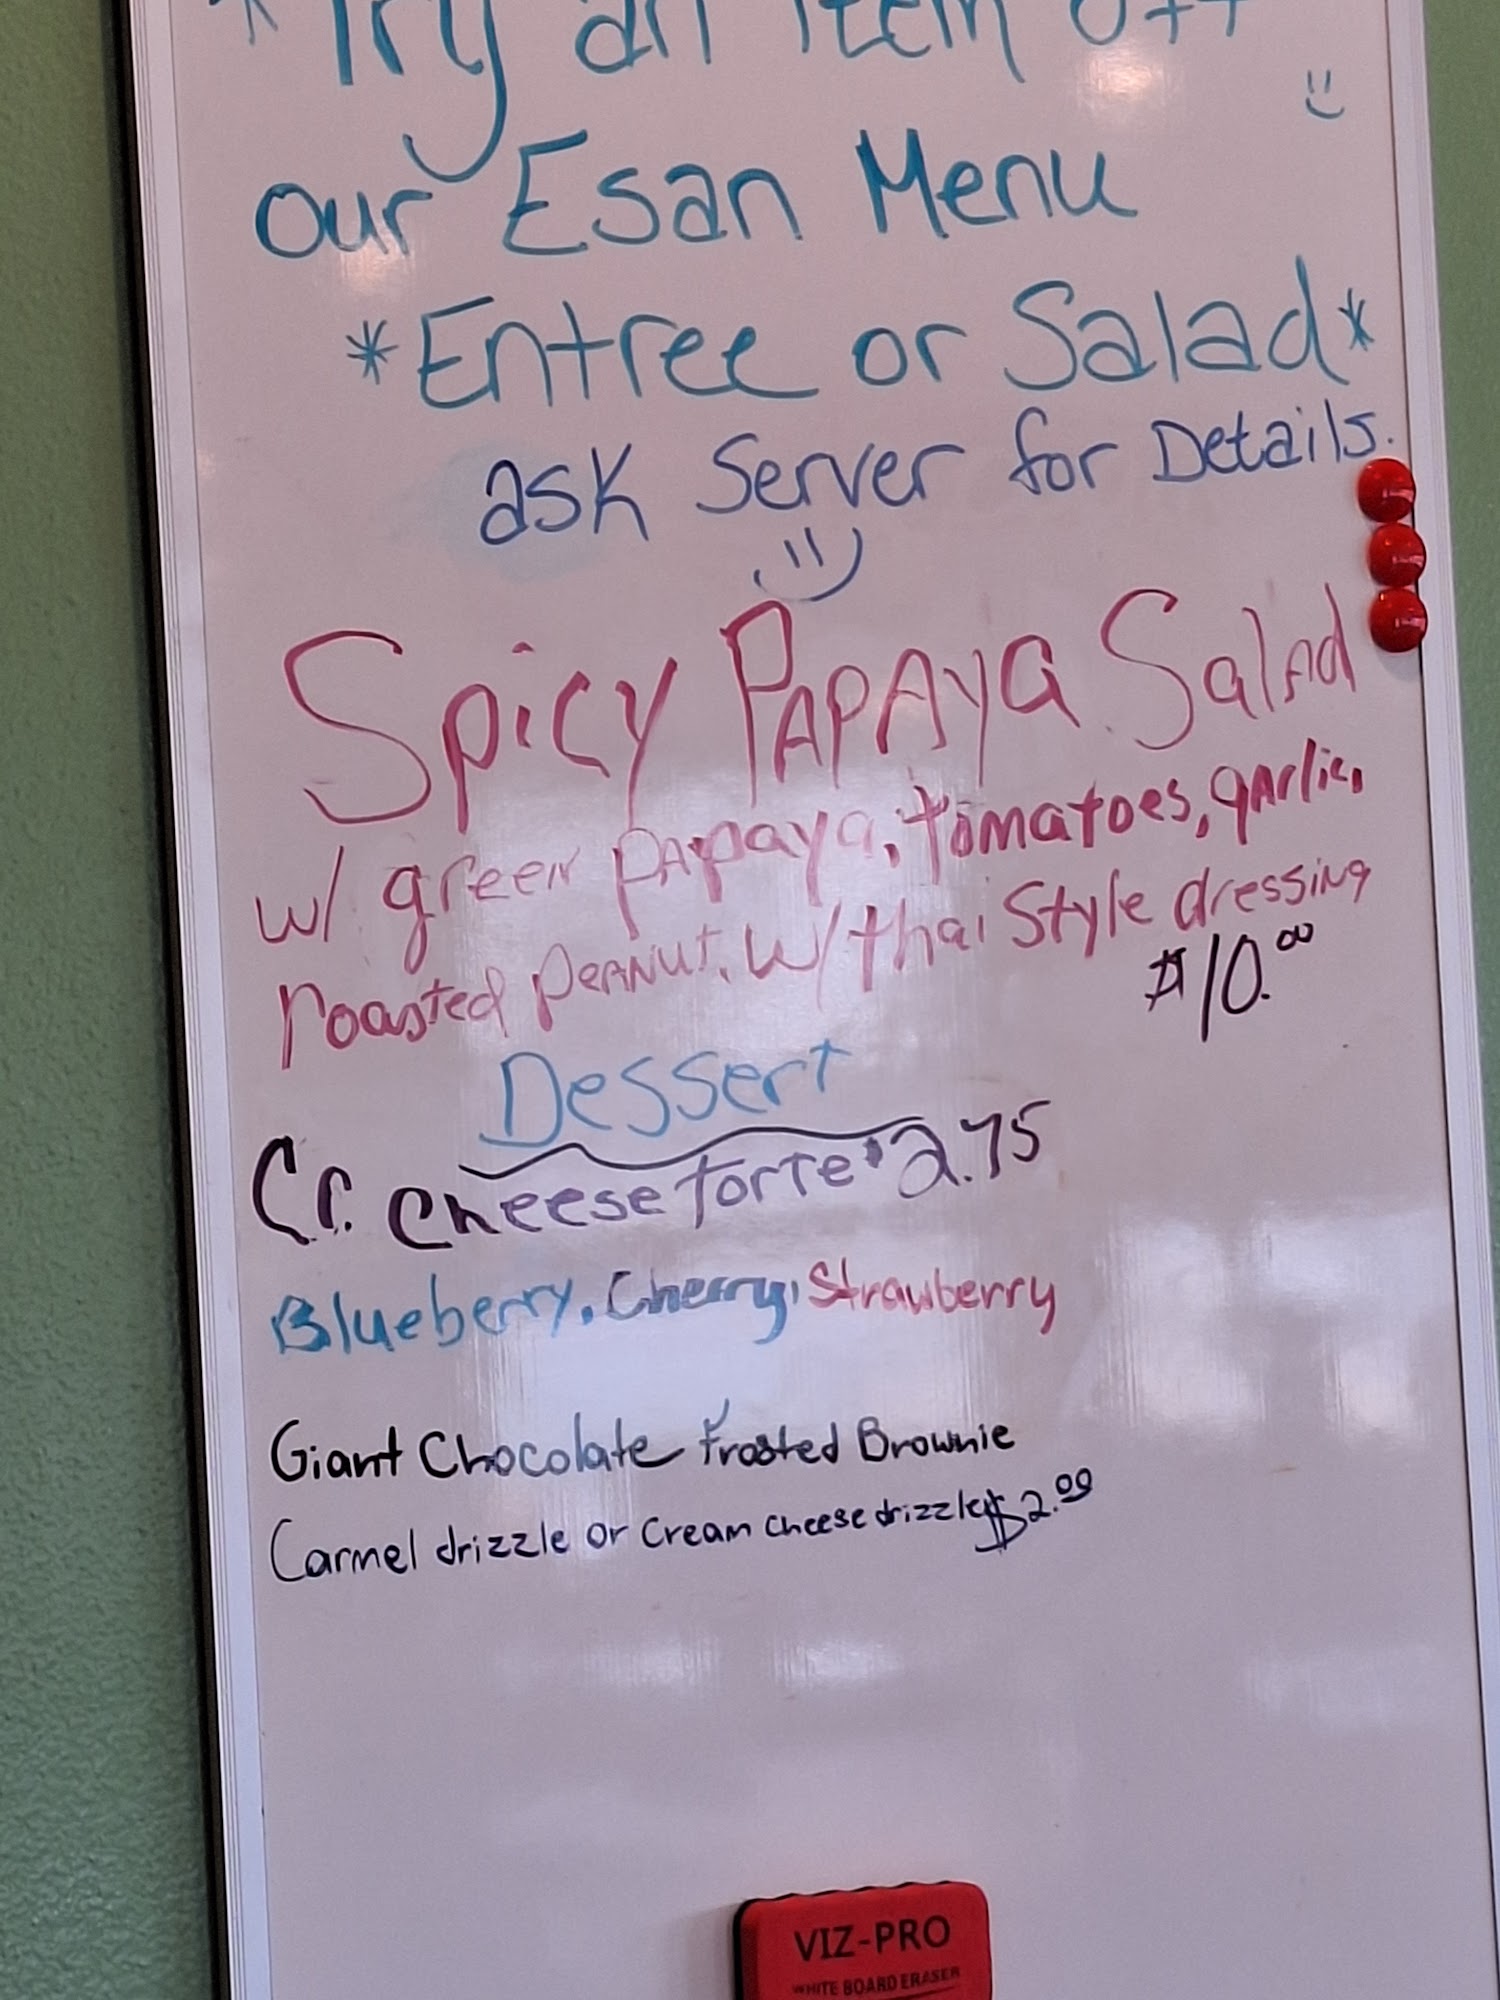 *Try an item off
our Esan Menu
*Entree or Salad*
ask Server for Details.
Spicy PAPAya Salad
w/ green papaya, tomatoes, garlic,
roasted peanut, w/ thai Style dressing
$10.00
Dessert
Cr. Cheese Torte $2.75
Blueberry, Cherry, Strawberry
Giant Chocolate Frosted Brownie
Carmel drizzle or Cream cheese drizzle $2.00
VIZ-PRO
WHITE BOARD ERASER